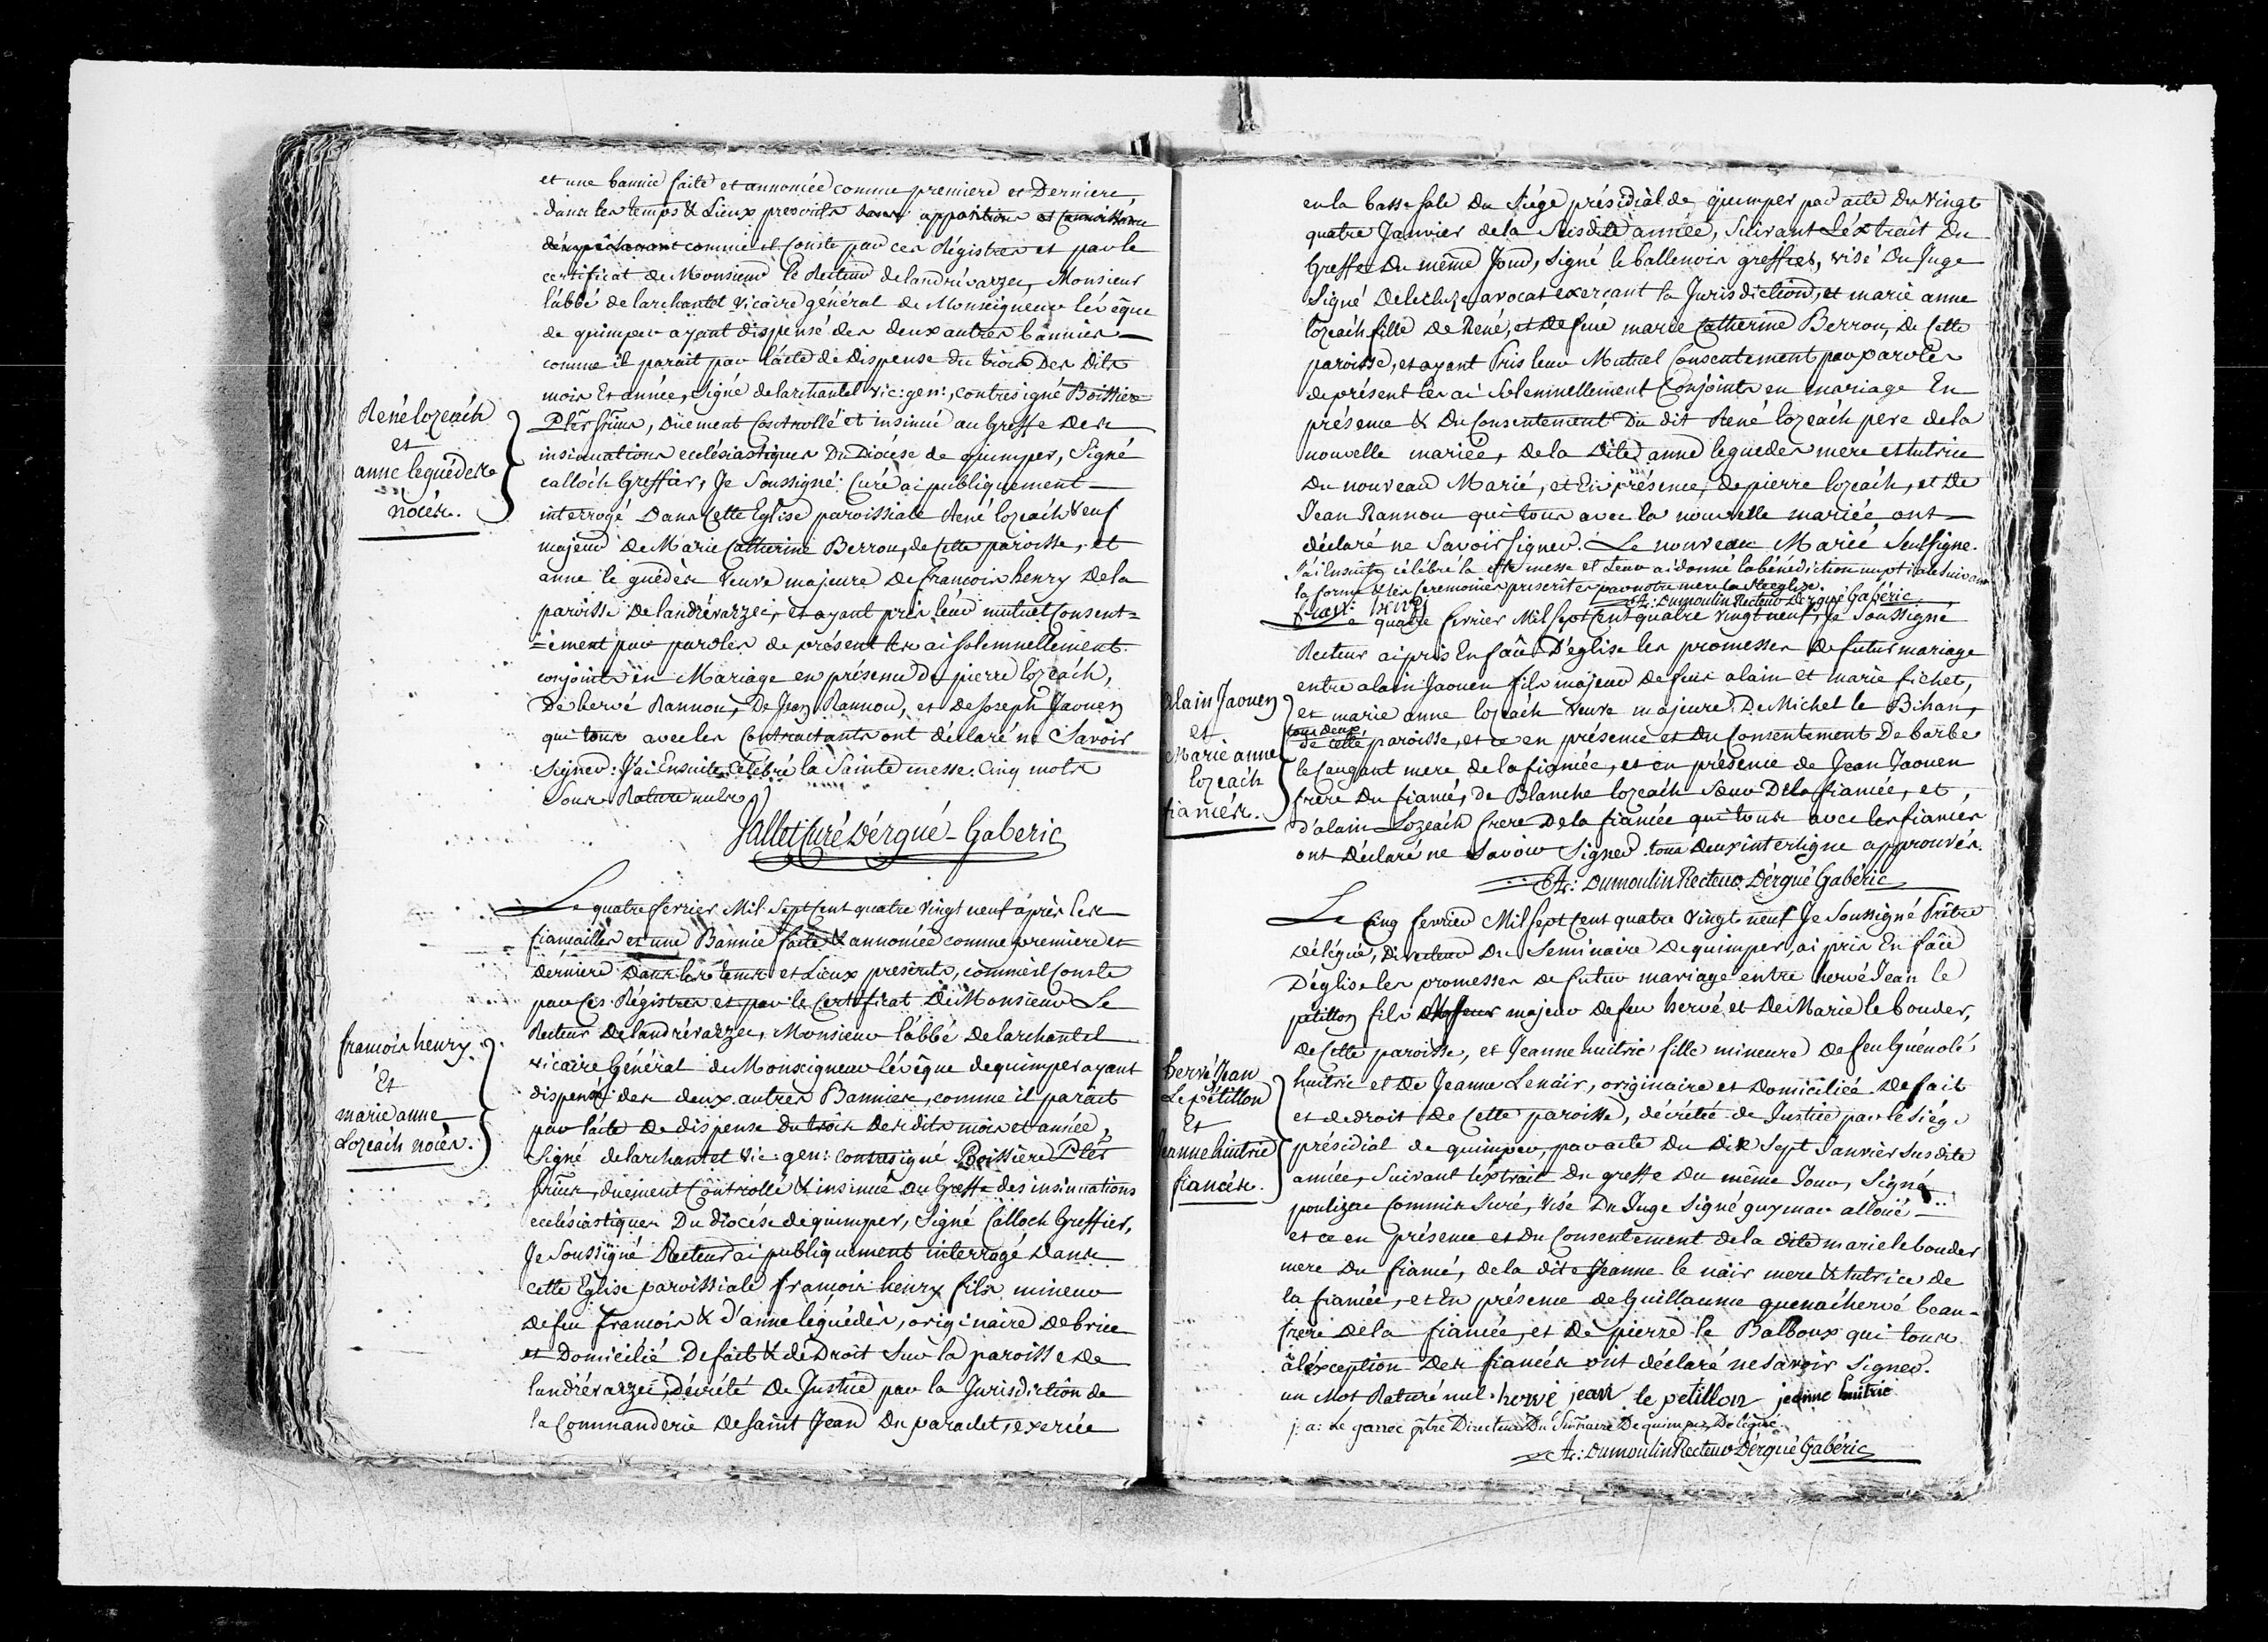 et une bannie faite et annoncée comme premiere et Derniere
dans les temps & Lieux prescrits sans apposition et connoissance
d'empêchement comme il Conste par ces Régistres et par le
certificat de Monsieur le Recteur de landrévarzec, Monsieur
l'abbé de larchantel vicaire général de Monseigneur lévêque
de quimper ayant dispensé des deux autres bannies
comme il parait par l'acte de Dispense du trois Des Dits
mois Et année, signé delarchantel vic: gen:, contresigné Boissiere
Ptre, düement Controllé et insinué au Greffe Des
René lozeach
et
anne leguédes
nôces.
insinuations ecclésiastiques Du Diocése de quimper, Signé
calloch Greffier, Je Soussigné Curé ai publiquement
interrogé Dans Cette Eglise paroissiale René lozeach Veuf
majeur de Marie Catherine Berrou, de Cette paroisse, et
anne le guédès Veuve majeure De francois henry De la
paroisse De landrévarzec, et ayant pris leur mutuel Consent=
=ement par paroles de présent les ai solemnellement
conjoints en Mariage en présence De pierre lozeach,
De hervé Rannou, De Jean Rannou, et De Joseph Jaouen
qui tous avec les Contractants ont déclaré ne Savoir
Signer: J'ai Ensuite Célébré la Sainte messe. Cinq mots
Sous Rature nuls
Jallet Curé D'érgué-Gaberic
Le quatre fevrier Mil Sept Cent quatre vingt neuf après les
fiancailles et une Bannie faite & annoncée comme premiere et
dérniere Dans les tems et Lieux prescrits, comme il Conste
par Ces Régistres et par le Certificat De Monsieur Le
Recteur De landrévarzec, Monsieur l'abbé Delarchantel
vicaire Général de Monseigneur lévêque dequimper ayant
francois henry
Et
marie anne
Lozeach noces.
dispensé des deux autres Bannies, comme il parait
par l'acte De dispense du trois Des dits mois et année,
Signé delarchantel vic: gen: Contresigné Boissiere Ptre
duement Controllé & insinué au Greffe des insinuations
ecclésiastiques Du diocése dequimper, Signé Calloch Greffier,
Je Soussigné Recteur ai publiquement interrogé Dans
cette Eglise paroissiale francois henry fils mineur
de feu francois & d'anne léguédès, originaire De briec
et Domicilié De fait & de Droit Sur la paroisse de
landrévarzec, Décrété De Justice par la Jurisdiction de
la Commanderie De saint Jean Du paraclet, exercée
en la basse sale Du Siége présidial de quimper par acte Du Vingt
quatre Janvier de la Susdite année, Suivant L'extrait Du
Greffe Du même Jour, Signé le ballenois greffier, visé Du Juge
Signé Delecluze avocat exerçant la Jurisdiction, et marie anne
lozeach fille De René, et De feue marie Catherine Berrou, De Cette
paroisse, et ayant Pris leur Mutuel Consentement par paroles
de présent les ai Solemnellement Conjoints en mariage En
présence & Du Consentement Du dit René lozeach pere dela
nouvelle mariée, de la Dite anne leguedes mere et tutrice
Du nouveau Marié, et En présence, de pierre lozeach, et De
Jean Rannou qui tous avec la nouvelle mariée ont
déclaré ne Savoir Signer. Le nouveau Marié Seul signe.
J'ai Ensuite célébré la ste messe et Leur ai donné la bénédiction nuptiale suivant
la forme & les Ceremonies prescrites par notre mere la Ste eglise.
A: Dumoulin Recteur D'érgué Gabéric
quatre fevrier Mil Sept Cent quatre Vingt neuf, Je Soussigné
Recteur ai pris En face D'église les promesses De futur mariage
entre alain Jaouen fils majeur De feus alain et marie fichet,
alain Jaouen
et
Marie anne
lozeach
fiancés.
et marie anne lozeach Veuve majeure De Michel le Bihan,
tous deux
de cette paroisse, et ce en présence et Du Consentement De barbe
le Caugant mere de la fiancée, et en présence de Jean Jaouen
frere Du fiancé, de Blanche lozeach Sœur De la fiancée, et
d'alain Lozeach frere De la fiancée qui tous avec les fiancés
ont Déclaré ne Savoir Signer. tous Deux interligne approuvés.
A: Dumoulin Recteur D'érgué Gabéric
Le Cinq fevrier Mil Sept Cent quatre Vingt neuf Je Soussigné Prêtre
délégué, Directeur Du Seminaire De quimper, ai pris En face
D'église les promesses De futur mariage entre hervé Jean le
petillon fils majeur de feu hervé et De Marie le bouder,
de Cette paroisse, et Jeanne huitric fille mineure De feu Guénolé
hervé Jean
Le petillon
Et
Jeanne huitric
fiancés.
huitric et De Jeanne Lenair, originaire et Domiciliée De fait
et de droit De Cette paroisse, décrétée de Justice par le Siége
présidial de quimper, par acte Du Dix Sept Janvier Susdite
année, Suivant l'extrait Du greffe Du même Jour, Signé
poulizac Commis Juré, Visé Du Juge Signé guymar alloüé
et ce en présence et Du Consentement de la dite marie le bouder
mere Du fiancé, de la dite Jeanne le nair mere & tutrice de
la fiancée, et En présence de Guillaume quenachervé beau-
frere De la fiancée, et De pierre le Balboux qui tous
à l'éxception Des fiancés ont déclaré ne Savoir Signer.
un Mot Raturé nul. hervé jean le petillon jeanne huitric
j: a: Le garrec ptre Directeur Du Seminaire De quimper, Délégué
A: Dumoulin Recteur D'érgué Gabéric